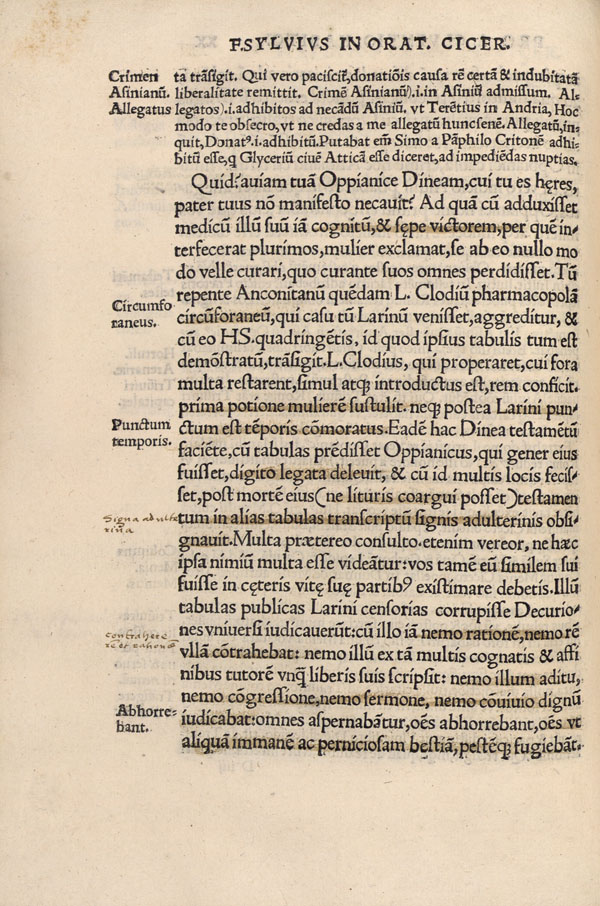 F. SYLVIVS IN ORAT. CICER.
Crimen
Asinianū.
Allegatus
ta trāsigit. Qui vero paciscit᷑, donatiōis causa rē certā & indubitatā
liberalitate remittit. Crimē Asinianū).i.in Asiniū admissum. Al-
legatos).i.adhibitos ad necādū Asiniū. vt Terētius in Andria, Hoc
modo te obsecro, vt ne credas a me allegatū huncsenē. Allegatū, in-
quit, Donatꝰ.i.adhibitū. Putabat em̄ Simo a Pāphilo Critonē adhi-
bitū esse, q̱ Glyceriū ciuē Atticā esse diceret, ad impediēdas nuptias.
Quid? auiam tuā Oppianice Dineam, cui tu es hęres,
pater tuus nō manifesto necauit? Ad quā cū adduxisset
medicū illū suū iā cognitū, & sępe victorem, per quē in-
terfecerat plurimos, mulier exclamat, se ab eo nullo mo
do velle curari, quo curante suos omnes perdidisset. Tū
repente Anconitanū quēdam L. Clodiū pharmacopolā
Circumfo
raneus.
circūforaneū, qui casu tū Larinū venisset, aggreditur, &
cū eo HS. quadringētis, id quod ipsius tabulis tum est
demōstratū, trāsigit. L. Clodius, qui properaret, cui fora
multa restarent, simul atqꝫ introductus est, rem conficit.
prima potione mulierē sustulit. neqꝫ postea Larini pun-
Punctum
temporis.
ctum est tēporis cōmoratus. Eadē hac Dinea testamētū
faciēte, cū tabulas prēdisset Oppianicus, qui gener eius
fuisset, digito legata deleuit, & cū id multis locis fecis-
set, post mortē eius (ne lituris coargui posset) testamen
Signa adulte
rina
tum in alias tabulas transcriptū signis adulterinis obsi-
gnauit. Multa prætereo consulto. etenim vereor, ne hæc
ipsa nimiū multa esse videātur: vos tamē eū similem sui
fuisse in cęteris vitę suę partibꝰ existimare debetis. Illū
tabulas publicas Larini censorias corrupisse Decurio-
contrahere
rē et rationē
nes vniuersi iudicauerūt: cū illo iā nemo rationē, nemo rē
vllā cōtrahebat: nemo illū ex tā multis cognatis & affi
nibus tutorē vnq̄ liberis suis scripsit: nemo illum aditu,
nemo cōgressione, nemo sermone, nemo cōuiuio dignū
Abhorre-
bant.
iudicabat: omnes aspernabātur, oēs abhorrebant, oēs vt
aliquā immanē ac perniciosam bestiā, pestēqꝫ fugiebāt.